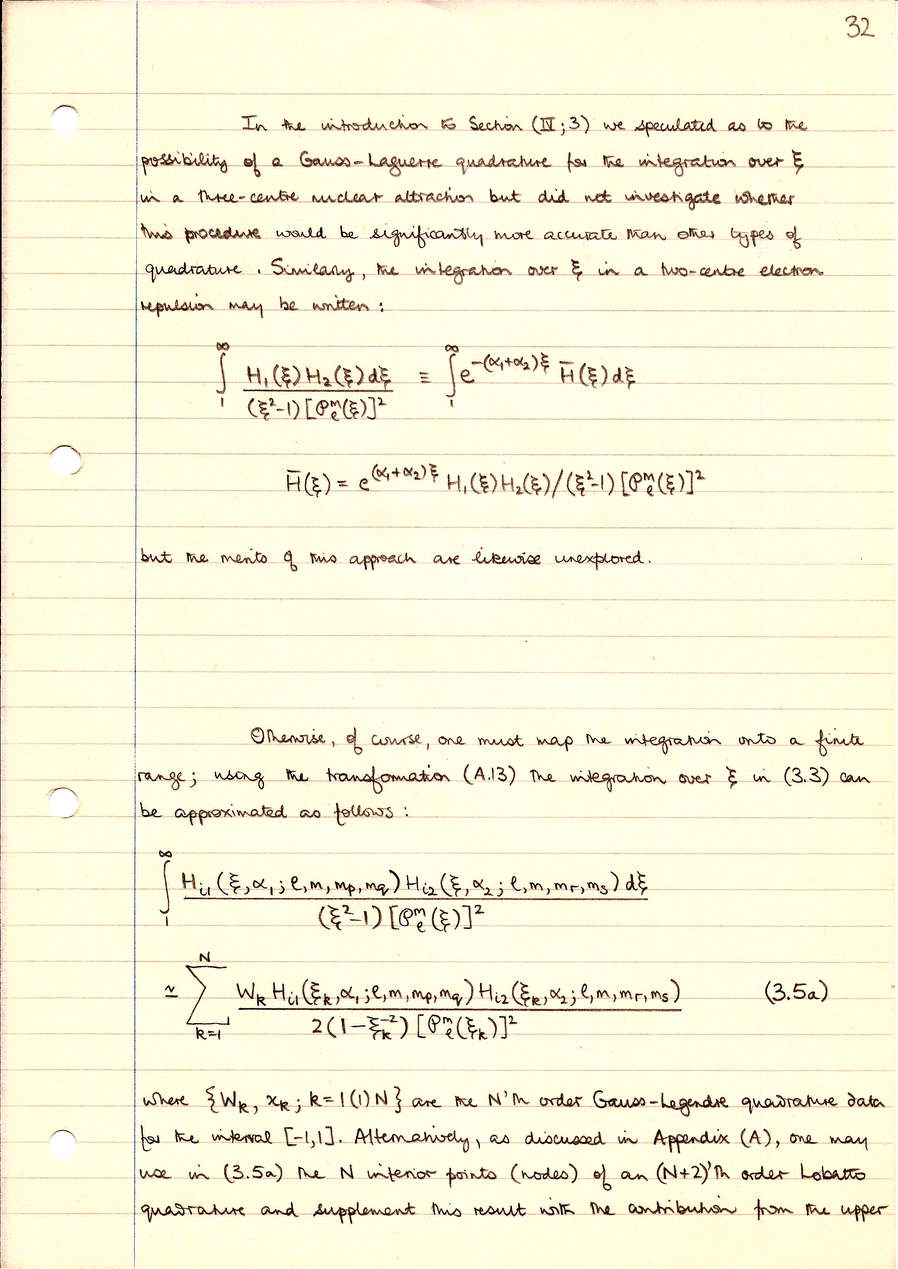 32
In the introduction to Section (IV;3) we speculated as to the
possibility of a Gauss-Laguerre quadrature for the integration over ξ
in a three-centre nuclear attraction but did not investigate whether
this procedure would be significantly more accurate than other types of
quadrature. Similarly, the integration over ξ in a two-centre electron
repulsion may be written:
∫₁^∞ H₁(ξ)H₂(ξ)dξ / (ξ²-1)[𝒫ₗᵐ(ξ)]² ≡ ∫₁^∞ e^{-(α₁+α₂)ξ} H̄(ξ)dξ
H̄(ξ) = e^{(α₁+α₂)ξ} H₁(ξ)H₂(ξ)/(ξ²-1)[𝒫ₗᵐ(ξ)]²
but the merits of this approach are likewise unexplored.
Otherwise, of course, one must map the integration onto a finite
range; using the transformation (A.13) the integration over ξ in (3.3) can
be approximated as follows:
∫₁^∞ H_{i1}(ξ,α₁;ℓ,m,mp,mq)H_{i2}(ξ,α₂;ℓ,m,mr,ms)dξ / (ξ²-1)[𝒫ₗᵐ(ξ)]²
≃ ∑_{k=1}^{N} W_k H_{i1}(ξ_k,α₁;ℓ,m,mp,mq)H_{i2}(ξ_k,α₂;ℓ,m,mr,ms) / 2(1-ξ_k^{-2})[𝒫ₗᵐ(ξ_k)]² (3.5a)
where {W_k, x_k; k=1(1)N} are the N'th order Gauss-Legendre quadrature data
for the interval [-1,1]. Alternatively, as discussed in Appendix (A), one may
use in (3.5a) the N interior points (nodes) of an (N+2)'th order Lobatto
quadrature and supplement this result with the contribution from the upper